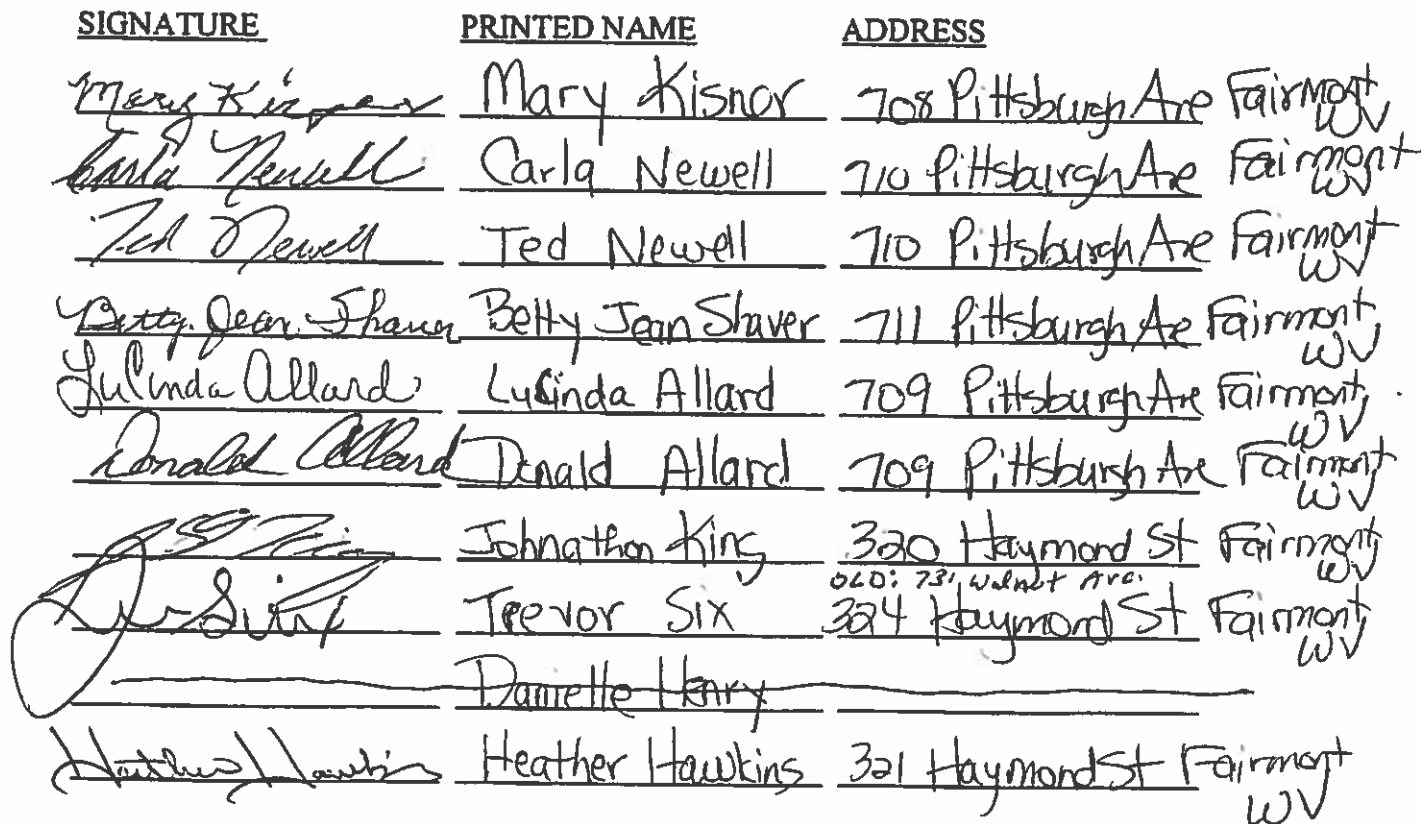 SIGNATURE PRINTED NAME ADDRESS
Mary Kisner Mary Kisnor 708 Pittsburgh Ave Fairmont, WV
Carla Newell Carla Newell 710 Pittsburgh Ave Fairmont WV
Ted Newell Ted Newell 710 Pittsburgh Ave Fairmont WV
Betty Jean Shaver Betty Jean Shaver 711 Pittsburgh Ave Fairmont, WV
LuCinda Allard LuCinda Allard 709 Pittsburgh Ave Fairmont, WV
Donald Allard Donald Allard 709 Pittsburgh Ave Fairmont WV
Johnathon King 320 Haymond St Fairmont, WV
OLD: 731 Walnut Ave.
Six Trevor Six 324 Haymond St Fairmont, WV
Danielle Henry
Heather Hawkins Heather Hawkins 321 Haymond St Fairmont WV